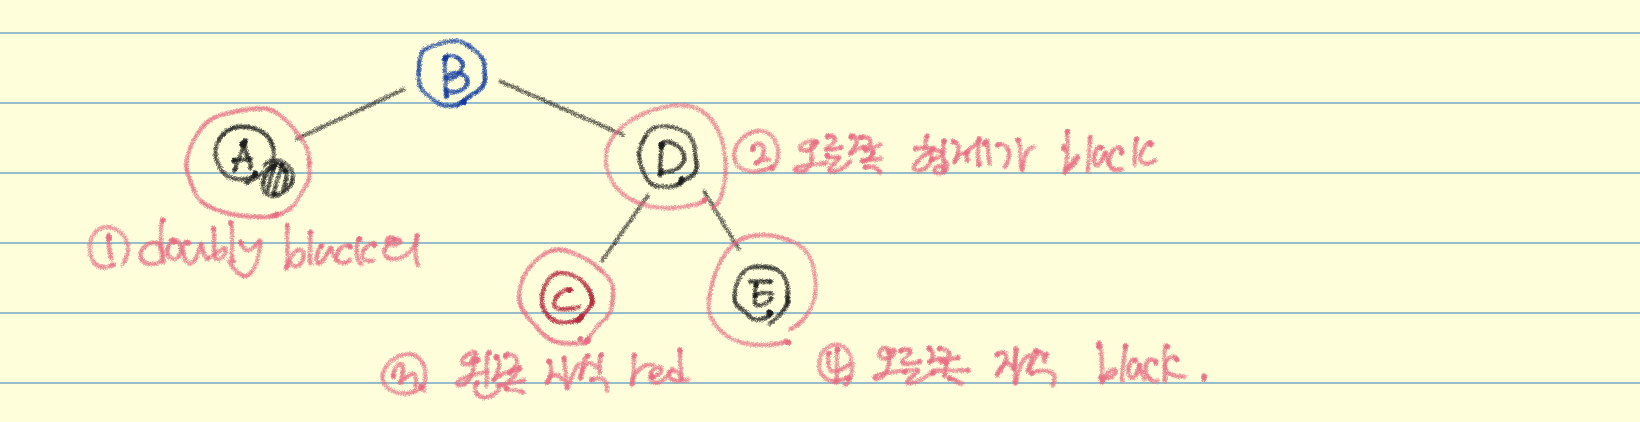 B
A
D
② 오른쪽 형제가 black
① doubly black의
C
E
③ 왼쪽 자식 red
④ 오른쪽 자식 black.